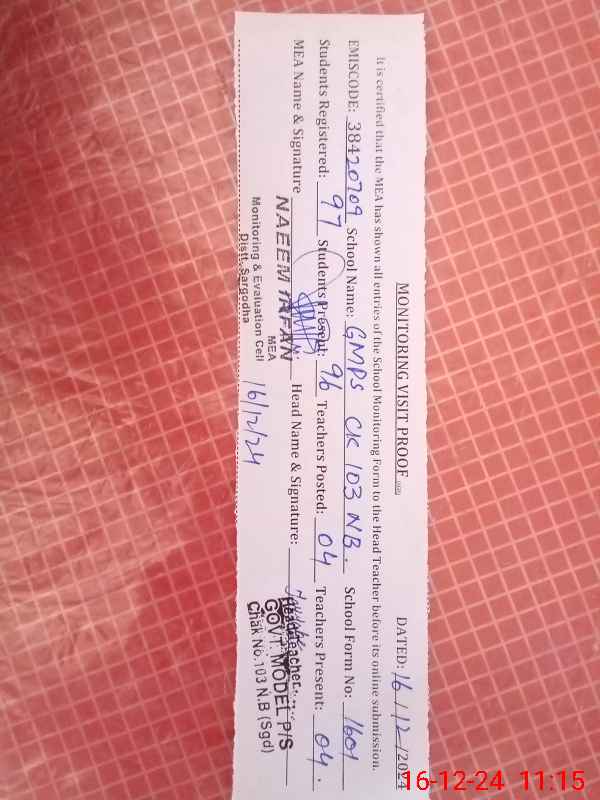 MONITORING VISIT PROOF
DATED: 16/12/2024
It is certified that the MEA has shown all entries of the School Monitoring Form to the Head Teacher before its online submission.
EMISCODE: 38420709 School Name: GMPS CK 103 NB. School Form No: 1601
Students Registered: 97 Students Present: 96 Teachers Posted: 04 Teachers Present: 04.
MEA Name & Signature Head Name & Signature:
NAEEM IRFAN
MEA
Monitoring & Evaluation Cell
Distt. Sargodha
16/12/24
Headteacher
GOVT. MODEL P/S
Chak No.103 N.B (Sgd)
16-12-24 11:15